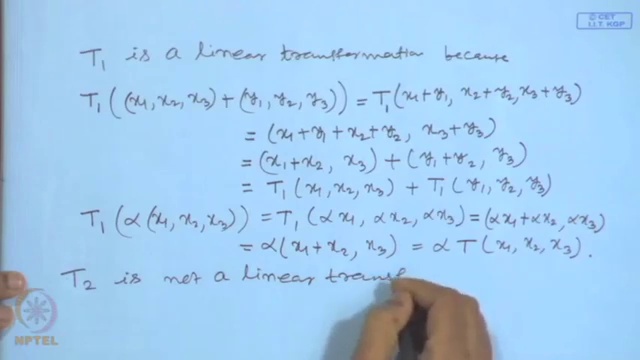 © CET
I.I.T. KGP
T₁ is a linear transformation because
T₁((x₁, x₂, x₃) + (y₁, y₂, y₃)) = T₁(x₁+y₁, x₂+y₂, x₃+y₃)
= (x₁+y₁+x₂+y₂, x₃+y₃)
= (x₁+x₂, x₃) + (y₁+y₂, y₃)
= T₁(x₁, x₂, x₃) + T₁(y₁, y₂, y₃)
T₁(α(x₁, x₂, x₃)) = T₁(αx₁, αx₂, αx₃) = (αx₁+αx₂, αx₃)
= α(x₁+x₂, x₃) = αT(x₁, x₂, x₃).
T₂ is not a linear transf
NPTEL